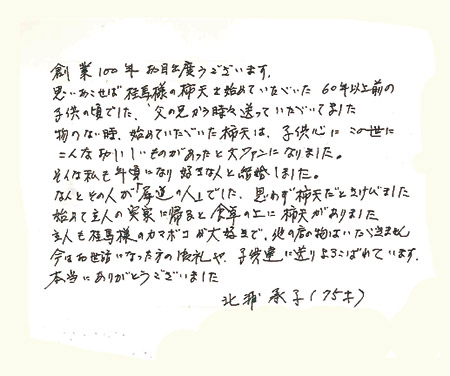 創業100年お目出度うございます。
思いおこせば桂馬様の柿天を始めていただいた60年以上前の
子供の頃でした、父の兄から時々送っていただいてました
物のない時、始めていただいた柿天は、子供心にこの世に
こんなおいしいものがあったと大ファンになりました。
そんな私も年頃になり好きな人と結婚しました。
なんとその人が「尾道の人」でした、思わず柿天だとさけびました
始めて主人の実家に帰ると食卓の上に柿天がありました
主人も桂馬様のカマボコが大好きで、他の店の物はいただきません
今はお世話になった方の御礼や、子供達に送りよろこばれています。
本当にありがとうございました
北浦 承子(75才)